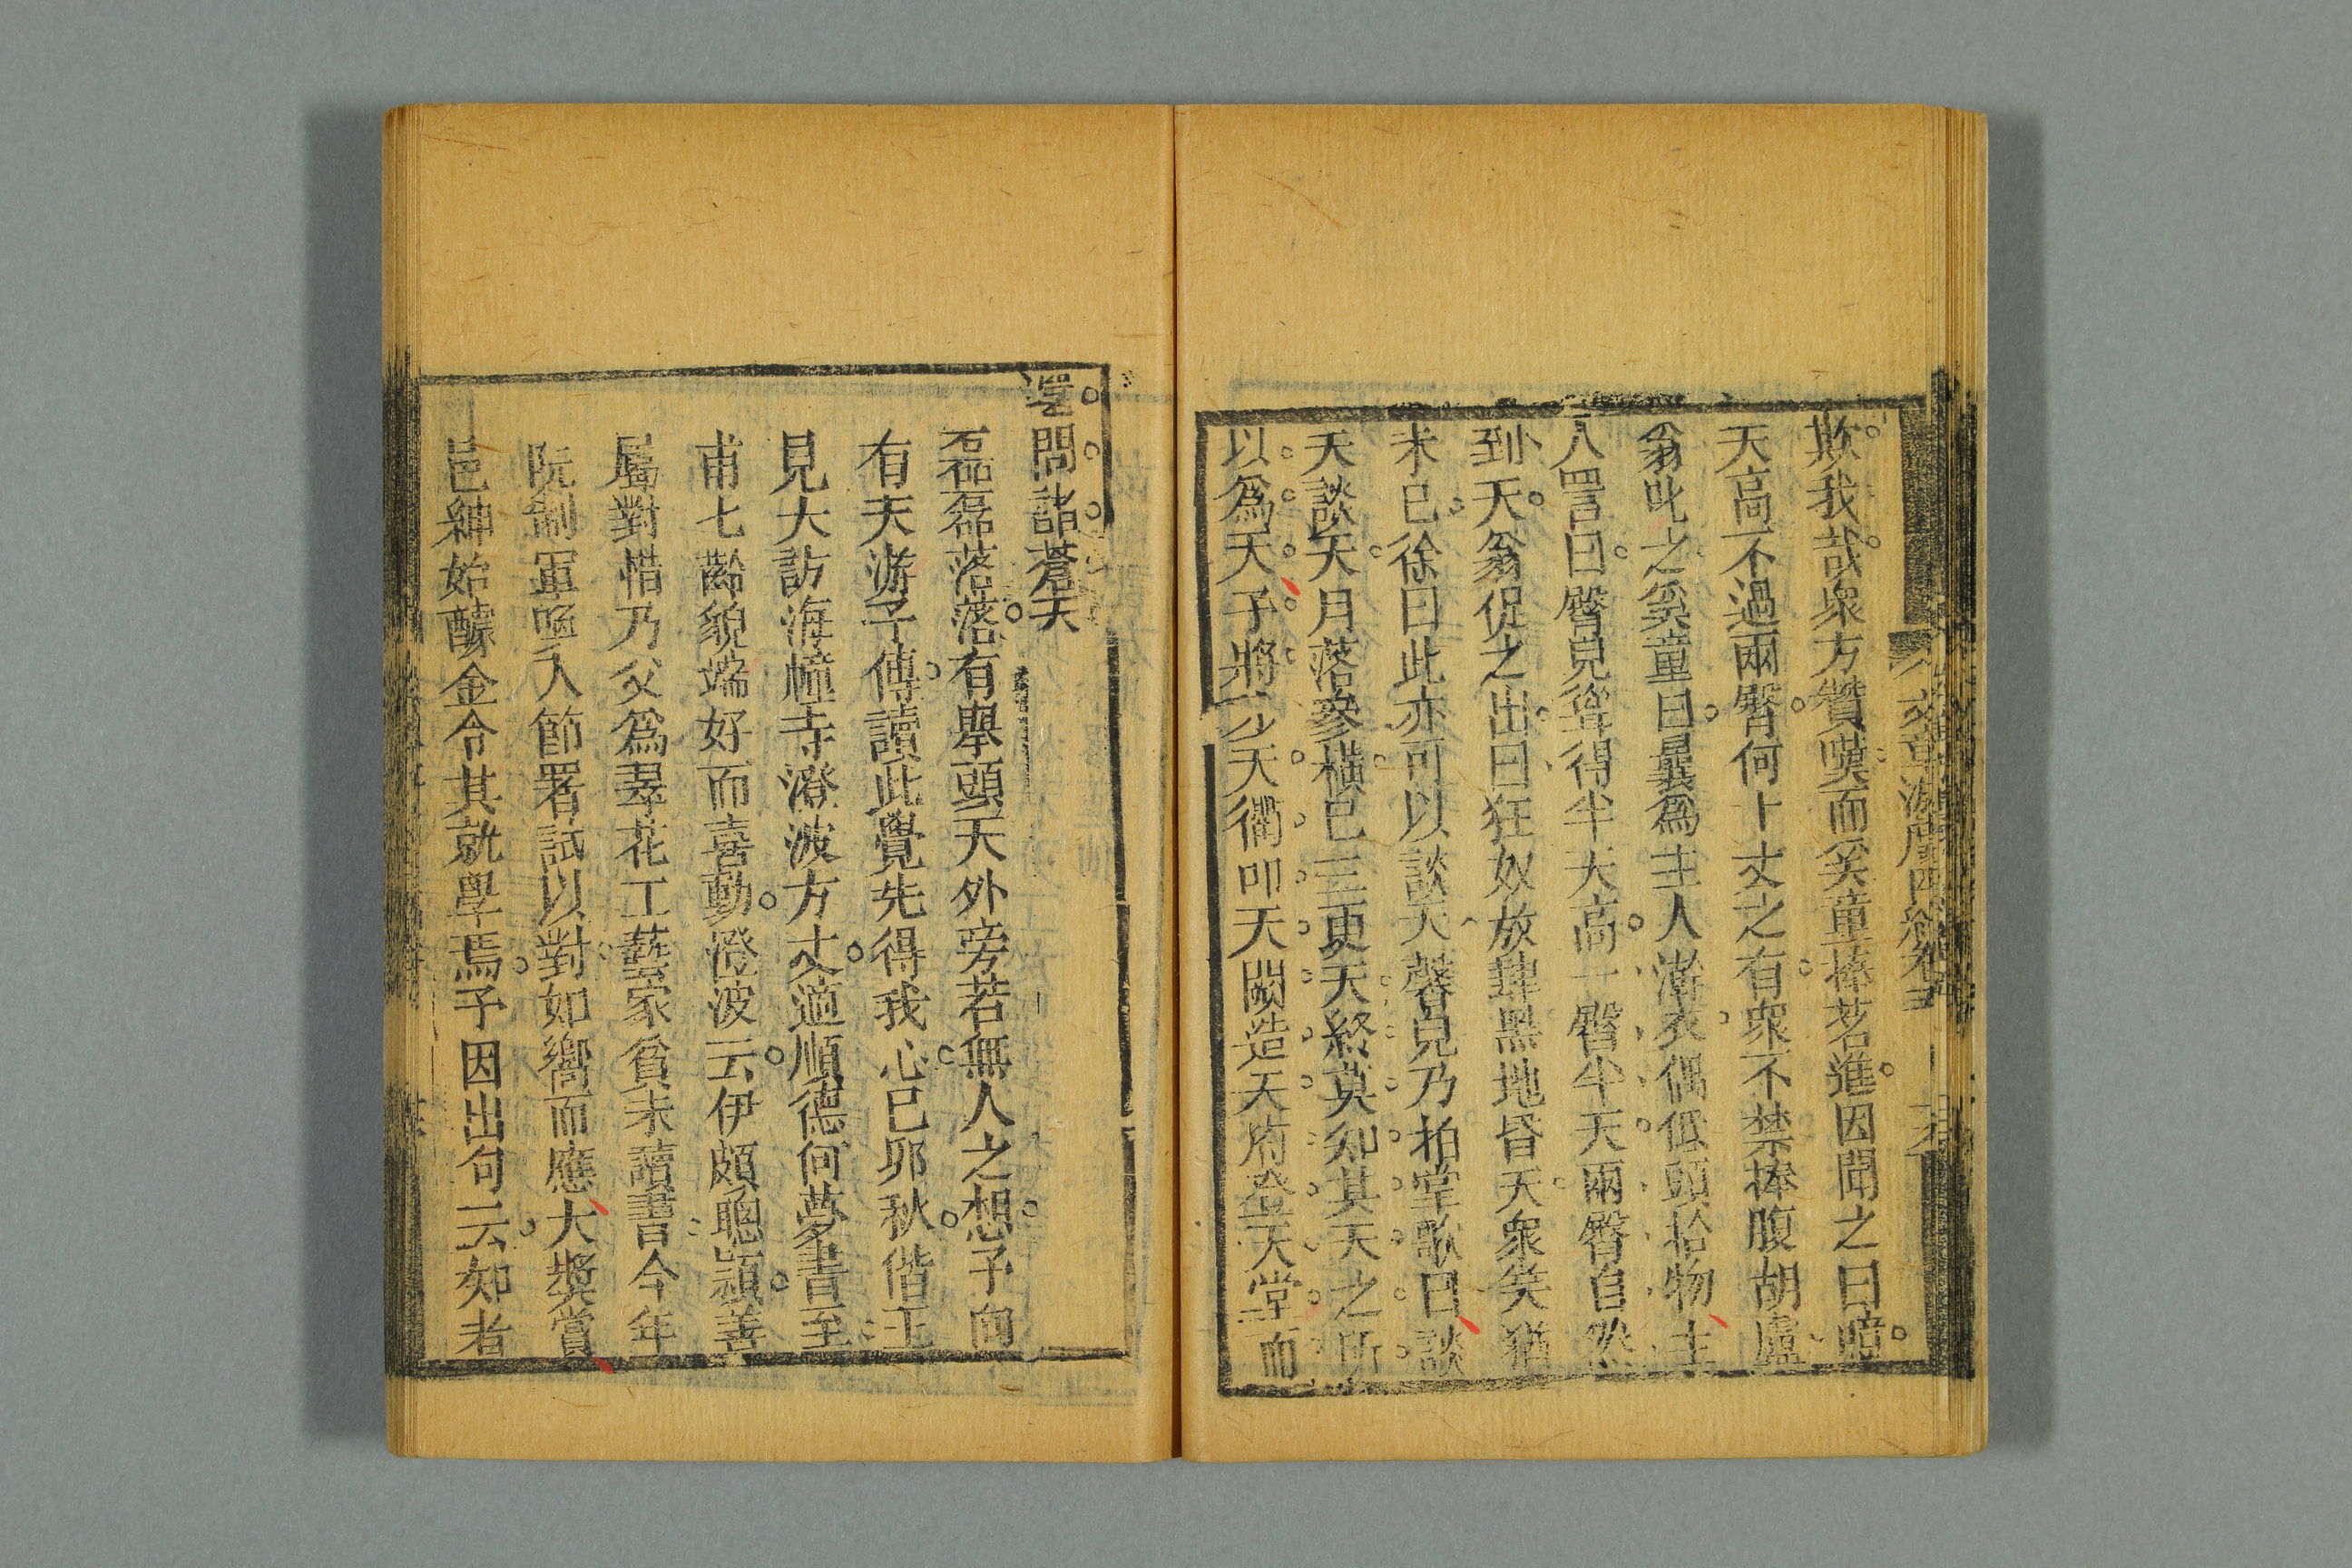 欺我哉衆方贊嘆而奚童捧茗進因聞之曰噫
天高不過兩臀何十丈之有衆不禁捧腹胡盧
翁叱之奚童曰曩爲主人澣衣偶低頭拾物主
人詈曰臀兒聳得半天高一臀半天兩臀自然
到天翁促之出曰狂奴放肆黑地昏天衆笑猶
未已徐曰此亦可以談天馨兒乃拍掌歌曰談
天談天月落參橫已三更天終莫知其天之所
以爲天予將上天衢叩天闕造天府登天堂而
還問諸蒼天
磊磊落落有舉頭天外旁若無人之想予向
有天游子傳讀此覺先得我心已邜秋偕王
見大訪海幢寺澄波方丈適順德何夢書至
甫七齡貌端好而喜動澄波云伊頗聰穎善
屬對惜乃父爲翠花工藝家貧未讀書今年
阮制軍喚入節署試以對如嚮而應大獎賞
邑紳始醵金令其就學焉予因出句云知者